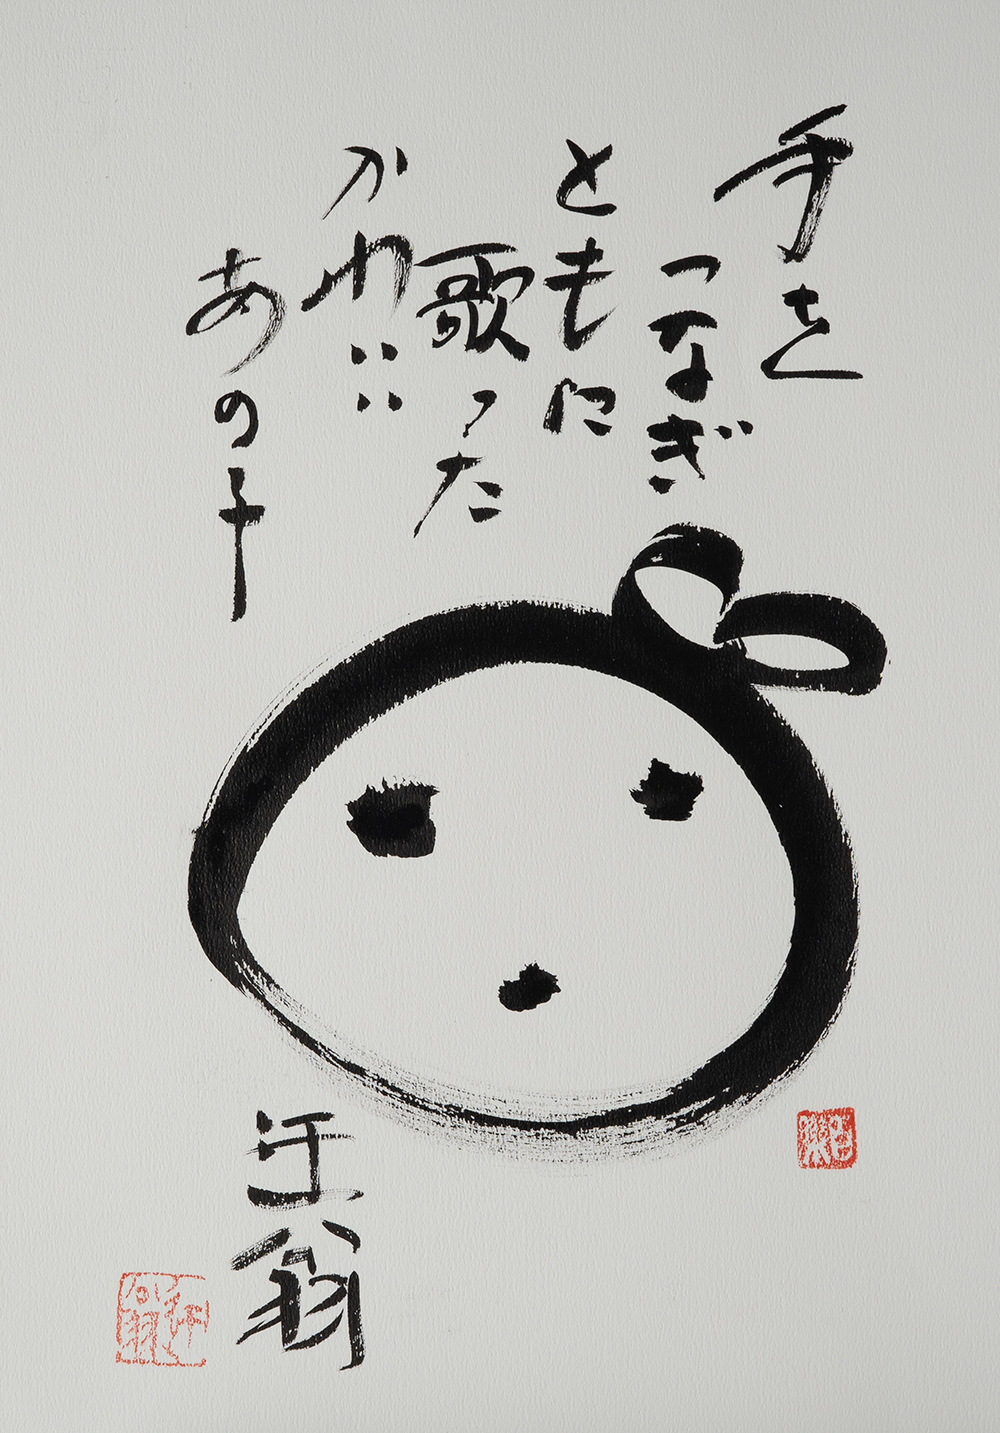 手を
つなぎ
ともに
歌った
かわいい
あの子